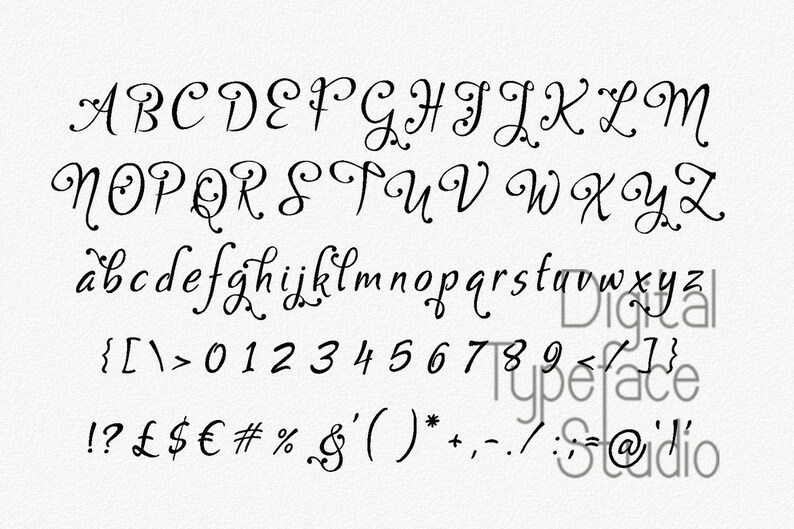 ABCDEFGHIJKLM
NOPQRSTUVWXYZ
abcdefghijklmnopqrstuvwxyz
{[\>0123456789</]}
!?£$€#%&'()*+,-./:;=@'|'
Digital
Typeface
Studio